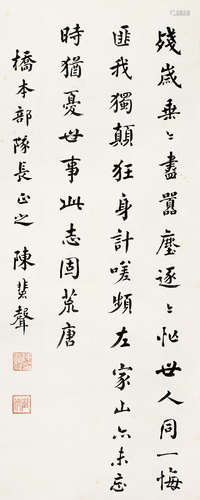 殘歲垂垂盡囂塵逐逐忙世人同一悔
匪我獨顛狂身計嗟頻左家山亦未忘
時猶憂世事此志固荒唐
橋本部隊長正之 陳 聲